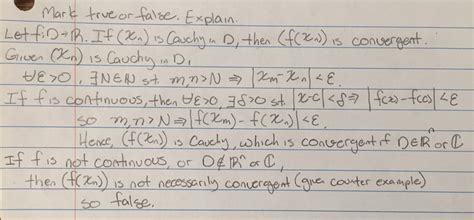 Mark true or false. Explain.
Let f:D→ℝ. If (xₙ) is Cauchy in D, then (f(xₙ)) is convergent.
Given (xₙ) is Cauchy in D,
∀ε>0, ∃N∈ℕ st m,n>N ⇒ |xₘ-xₙ|<ε.
If f is continuous, then ∀ε>0, ∃δ>0 st |x-c|<δ ⇒ |f(x)-f(c)|<ε
so m,n>N ⇒ |f(xₘ)-f(xₙ)|<ε.
Hence, (f(xₙ)) is Cauchy, which is convergent if D∈ℝⁿ or ℂ
If f is not continuous, or D∉ℝⁿ or ℂ,
then (f(xₙ)) is not necessarily convergent (give counter example)
so false.